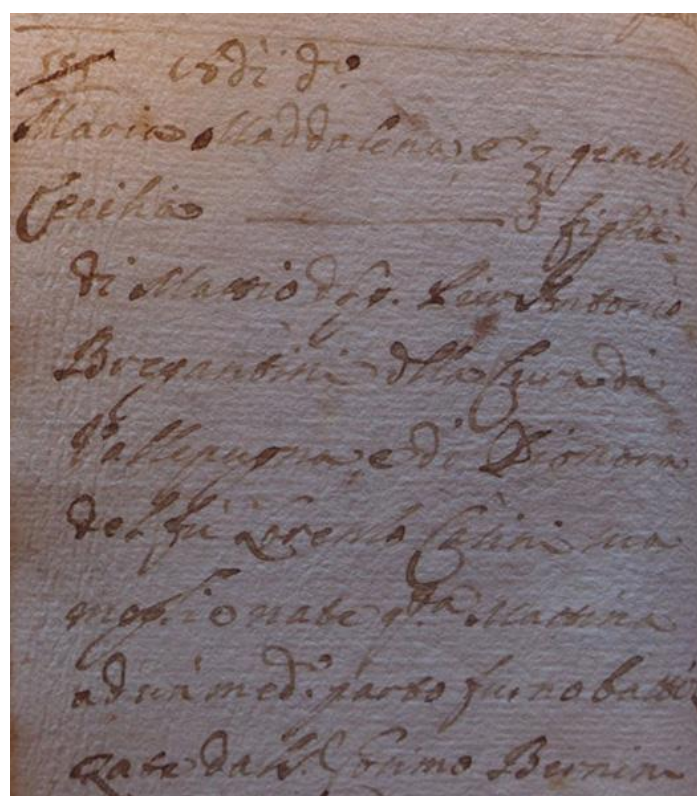 551 18 dì d.o
Maria Maddalena e gemelle
Cecilia figlie
di Mattio di Antonio
Bregantini della Cura di
Vallepugna e di Dionora
del fù Lorenzo Casini sua
moglie nate q.ta Mattina
ad un med.o parto furno batte
zate dall Bernini